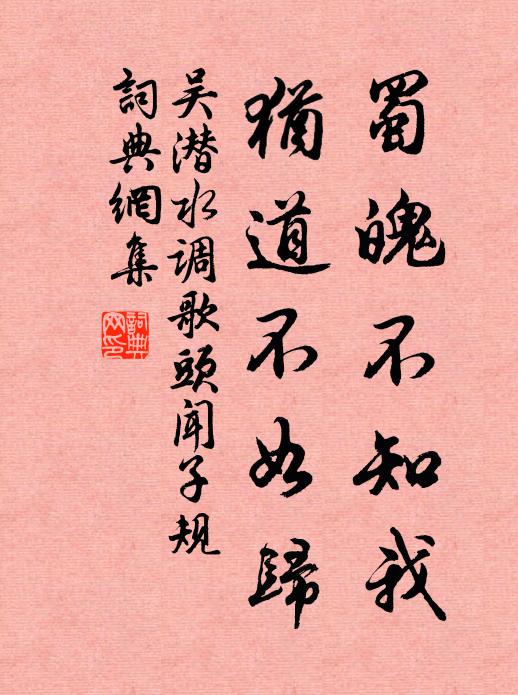 蜀魄不知我
猶道不如歸
吴潜水调歌頭聞子規
詞典網集
詞典
网印